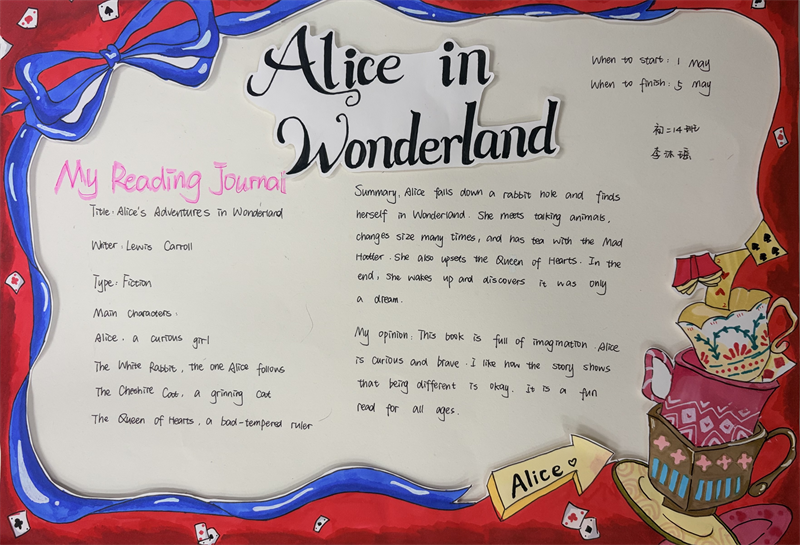 Alice in
Wonderland
When to start: 1 May
When to finish: 5 May
初二14班
李沐瑶
My Reading Journal
Title: Alice's Adventures in Wonderland
Writer: Lewis Carroll
Type: Fiction
Main Characters:
Alice, a curious girl
The White Rabbit, the one Alice follows
The Cheshire Cat, a grinning cat
The Queen of Hearts, a bad-tempered ruler
Summary. Alice falls down a rabbit hole and finds
herself in Wonderland. She meets talking animals,
changes size many times, and has tea with the Mad
Hatter. She also upsets the Queen of Hearts. In the
end, she wakes up and discovers it was only
a dream.
My opinion: This book is full of imagination. Alice
is curious and brave. I like how the story shows
that being different is okay. It is a fun
read for all ages.
Alice